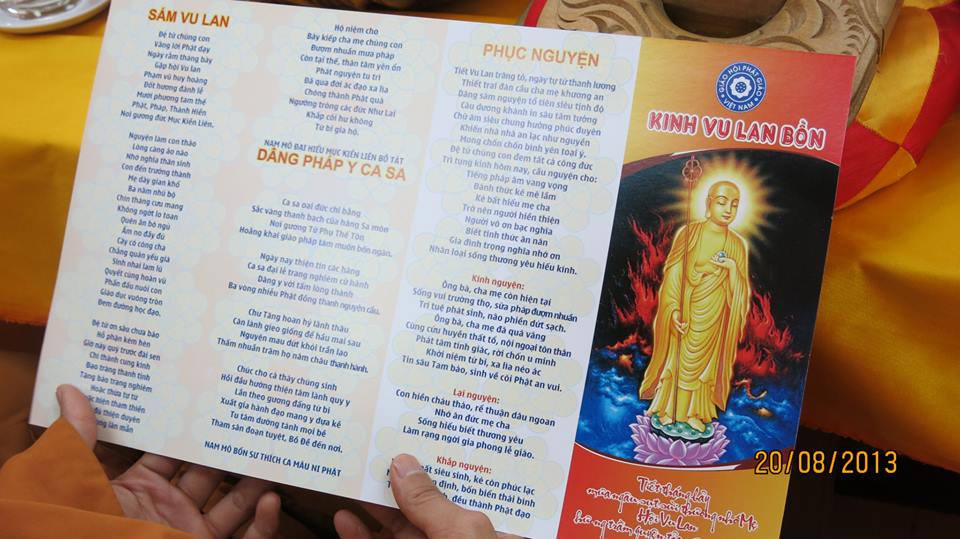 SÁM VU LAN
Đệ tử chúng con
Vâng lời Phật dạy
Ngày rằm tháng bảy
Gặp hội Vu lan
Phạm vũ huy hoàng
Đốt hương đảnh lễ
Mười phương tam thế
Phật, Pháp, Thánh Hiền
Noi gương đức Mục Kiền Liên.
Nguyện làm con thảo
Lòng càng áo não
Nhớ nghĩa thân sinh
Con đến trưởng thành
Mẹ dày gian khổ
Ba năm nhũ bộ
Chín tháng cưu mang
Không ngớt lo toan
Quên ăn bỏ ngủ
Ấm no đầy đủ
Cậy có công cha
Chẳng quản yếu già
Sinh nhai lam lũ
Quyết cùng hoàn vũ
Phấn đấu nuôi con
Giáo dục vuông tròn
Đem đường học đạo.
Đệ tử ơn sâu chưa báo
Hổ phận kém hèn
Giờ này quỳ trước đài sen
Chí thành cung kính
Đạo tràng thanh tịnh
Tăng bảo trang nghiêm
Hoặc thừa tự tứ
hiện tham thiền
đủ thiện duyên
lân mẫn
Hộ niệm cho
Bảy kiếp cha mẹ chúng con
Đượm nhuần mưa pháp
Còn tại thế, thân tâm yên ổn
Phát nguyện tu trì
Đã qua đời ác đạo xa lìa
Chóng thành Phật quả
Ngưỡng trông các đức Như Lai
Khắp cõi hư không
Từ bi gia hộ.
NAM MÔ ĐẠI HIẾU MỤC KIỀN LIÊN BỒ TÁT
DÂNG PHÁP Y CA SA
Ca sa oai đức chi bằng
Sắc vàng thanh bạch của hàng Sa môn
Noi gương Từ Phụ Thế Tôn
Hoằng khai giáo pháp tám muôn bốn ngàn.
Ngày nay thiện tín các hàng
Ca sa đại lễ trang nghiêm cử hành
Dâng y với tấm lòng thành
Ba vòng nhiễu Phật đồng thanh nguyện cầu.
Chư Tăng hoan hỷ lãnh thâu
Cần lành gieo giống để hầu mai sau
Nguyện mau dứt khỏi trần lao
Thấm nhuần trăm họ năm châu thạnh hành.
Chúc cho cả thảy chúng sinh
Hồi đầu hướng thiện tâm lành quy y
Lần theo gương đấng từ bi
Xuất gia hành đạo mang y dựa kề
Tu tâm dưỡng tánh mọi bề
Tham sân đoạn tuyệt, Bồ Đề đến nơi.
NAM MÔ BỔN SƯ THÍCH CA MÂU NI PHẬT
PHỤC NGUYỆN
Tiết Vu Lan trăng tỏ, ngày tự tứ thanh lương
Thiết trai đàn cầu cha mẹ khương an
Dâng sám nguyện tổ tiên siêu tịnh độ
Cầu dương khánh in sâu tâm tưởng
Chữ âm siêu chung hưởng phúc duyên
Khiến nhà nhà an lạc như nguyền
Mong chốn chốn bình yên toại ý.
Đệ tử chúng con đem tất cả công đức
Trì tụng kinh hôm nay, cầu nguyện cho:
Tiếng pháp âm vang vọng
Đánh thức kẻ mê lầm
Kẻ bất hiếu mẹ cha
Trở nên người hiền thiện
Người vô ơn bạc nghĩa
Biết tỉnh thức ăn năn
Gia đình trọng nghĩa nhớ ơn
Nhân loại sống thương yêu hiếu kính.
Kính nguyện:
Ông bà, cha mẹ còn hiện tại
Sống vui trường thọ, sữa pháp đượm nhuần
Trí tuệ phát sinh, não phiền dứt sạch.
Ông bà, cha mẹ đã quá vãng
Cùng cửu huyền thất tổ, nội ngoại tôn thân
Phát tâm tinh giác, rời chốn u minh
Khởi niệm từ bi, xa lìa nẻo ác
Tin sâu Tam bảo, sinh về cõi Phật an vui.
Lại nguyện:
Con hiền cháu thảo, rể thuận dâu ngoan
Nhớ ân đức mẹ cha
Sống hiểu biết thương yêu
Làm rạng ngời gia phong lễ giáo.
Khắp nguyện:
mất siêu sinh, kẻ còn phúc lạc
định, bốn biển thái bình
đều thành Phật đạo
GIÁO HỘI PHẬT GIÁO
VIỆT NAM
KINH VU LAN BỒN
Tiết tháng bảy
mưa ngâu sụt sùi thương nhớ Mẹ
Hội Vu Lan
20/08/2013